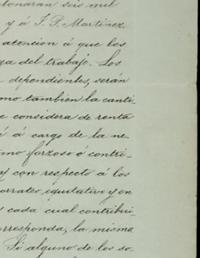 bonaran seis mil
y á J. P. Martinez
atencion á que los
za del trabajo. Los
dependientes, serán
omo tambien la canti-
e considera de renta
é á cargo de la ne-
omo forzoso ó contri-
con respecto á los
orrateo, equitativo y en
cada cual contribui
orresponda, la misma
Si alguno de los so-